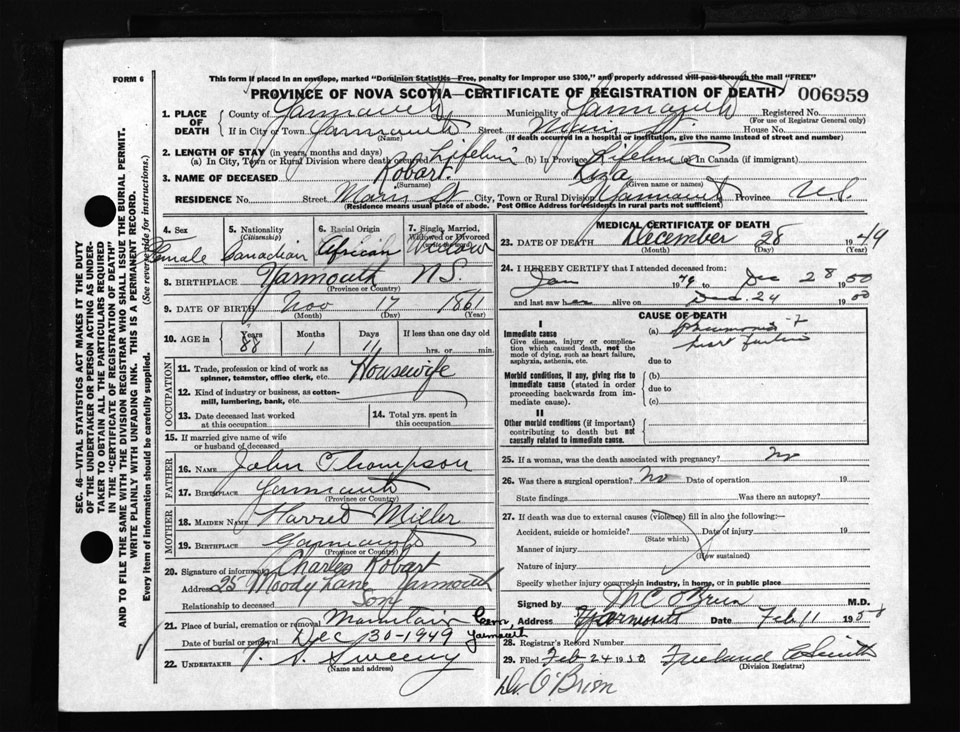 FORM 6
This form if placed in an envelope, marked "Dominion Statistics—Free, penalty for improper use $300," and properly addressed will pass through the mail "FREE"
PROVINCE OF NOVA SCOTIA—CERTIFICATE OF REGISTRATION OF DEATH 006959
SEC. 46—VITAL STATISTICS ACT MAKES IT THE DUTY
OF THE UNDERTAKER OR PERSON ACTING AS UNDER-
TAKER TO OBTAIN ALL THE PARTICULARS REQUIRED
IN THE "CERTIFICATE OF REGISTRATION OF DEATH"
AND TO FILE THE SAME WITH THE DIVISION REGISTRAR WHO SHALL ISSUE THE BURIAL PERMIT.
WRITE PLAINLY WITH UNFADING INK. THIS IS A PERMANENT RECORD.
Every item of information should be carefully supplied. (See reverse side for instructions.)
1. PLACE OF DEATH
County of Yarmouth Municipality of Yarmouth Registered No.
(For use of Registrar General only)
If in City or Town Yarmouth Street Main St. House No.
(Name) (If death occurred in a hospital or institution, give the name instead of street and number)
2. LENGTH OF STAY (in years, months and days)
(a) In City, Town or Rural Division where death occurred Lifetime (b) In Province Lifetime (c) In Canada (if immigrant)
3. NAME OF DECEASED Robart Liza
(Surname) (Given name or names)
RESIDENCE No. Street Main St City, Town or Rural Division Yarmouth Province N.S.
(Residence means usual place of abode. Post Office Address for residents in rural parts not sufficient)
4. Sex 5. Nationality (Citizenship) 6. Racial Origin 7. Single, Married, Widowed or Divorced
Female Canadian African Widow
8. BIRTHPLACE Yarmouth N.S.
(Province or Country)
9. DATE OF BIRTH Nov 17 1861
(Month) (Day) (Year)
10. AGE in Years Months Days If less than one day old
88 1 11 hrs. or min.
OCCUPATION
11. Trade, profession or kind of work as spinner, teamster, office clerk, etc. Housewife
12. Kind of industry or business, as cotton-mill, lumbering, bank, etc.
13. Date deceased last worked at this occupation
14. Total yrs. spent in this occupation
15. If married give name of wife or husband of deceased
FATHER
16. NAME John Thompson
17. BIRTHPLACE Yarmouth
(Province or Country)
MOTHER
18. MAIDEN NAME Harret Miller
19. BIRTHPLACE Yarmouth
(Province or Country)
20. Signature of informant Charles Robart
Address 25 Moody Lane Yarmouth
Relationship to deceased Son
21. Place of burial, cremation or removal Mountain Cem, Yarmouth
Date of burial or removal Dec 30-1949
22. UNDERTAKER V. S. Sweeny
(Name and address)
MEDICAL CERTIFICATE OF DEATH
23. DATE OF DEATH December 28 1949
(Month) (Day)
24. I HEREBY CERTIFY that I attended deceased from:
Jan 1949 to Dec 28 1950
and last saw her alive on Dec. 24 1950
CAUSE OF DEATH
I
Immediate cause
Give disease, injury or complication which caused death, not the mode of dying, such as heart failure, asphyxia, asthenia, etc.
(a) pneumonia - ?
heart failure
due to
Morbid conditions, if any, giving rise to immediate cause (stated in order proceeding backwards from immediate cause).
(b)
due to
(c)
II
Other morbid conditions (if important) contributing to death but not causally related to immediate cause.
25. If a woman, was the death associated with pregnancy? no
26. Was there a surgical operation? no Date of operation 19
State findings Was there an autopsy?
27. If death was due to external causes (violence) fill in also the following:—
Accident, suicide or homicide? Date of injury 19
(State which)
Manner of injury
(How sustained)
Nature of injury
Specify whether injury occurred in industry, in home, or in public place
Signed by M C O'Brien M.D.
Address Yarmouth Date Feb 11 1950
28. Registrar's Record Number
29. Filed Feb 24 1950 Freeland C Smith
(Division Registrar)
Dr. O'Brien